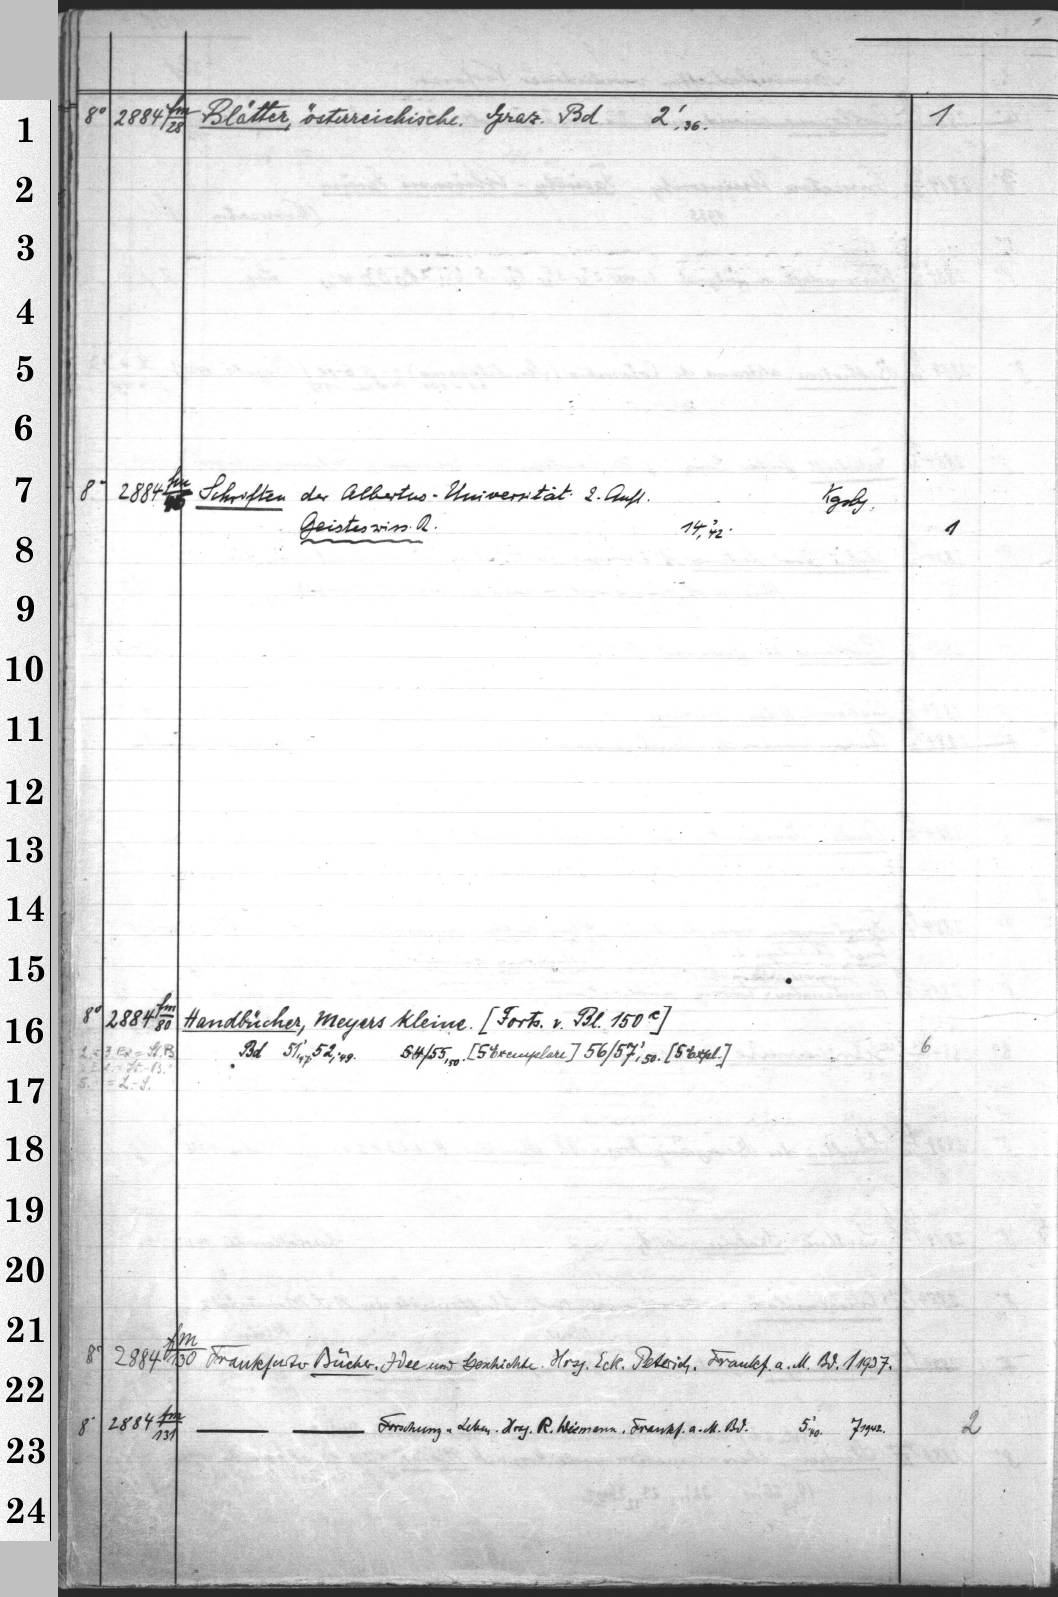 1 8° 2884 fm/28 Blätter, österreichische. Graz. Bd 2,'36. 1
2
3
4
5
6
7 8° 2884 fm Schriften der Albertus-Universität. 2. Aufl. Kgsbg.
8 Geisteswiss. R. 14,'42. 1
9
10
11
12
13
14
15
16 8° 2884 fm/80 Handbücher, Meyers kleine. [Forts. v. Bl. 150c]
Bd 51,'47, 52,'49. 54/55,50. [5 Exemplare] 56/57,'50. [5 Expl.] 6
17
18
19
20
21
8° 2884 fm/130 Frankfurter Bücher. Idee und Geschichte. Hrsg. Eck. Peterich. Frankf. a. M. Bd. 1 1937.
22
8° 2884 fm/131 Forschung u. Leben. Hrsg. R. Wiemann. Frankf. a. M. Bd. 5'40. 7 1942. 2
23
24